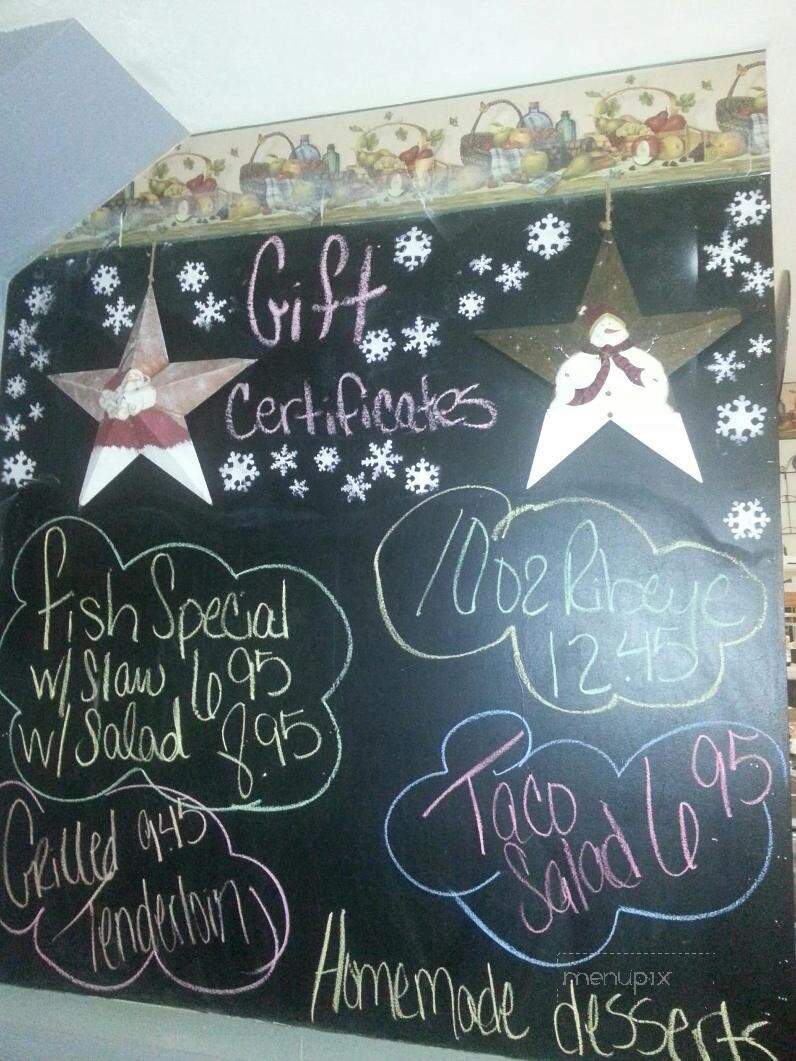 Gift
Certificates
Fish Special
w/ Slaw 6.95
w/ Salad 8.95
10 oz Ribeye
12.45
Grilled 9.45
Tenderloin
Taco
Salad 6.95
Homemade desserts
menupix